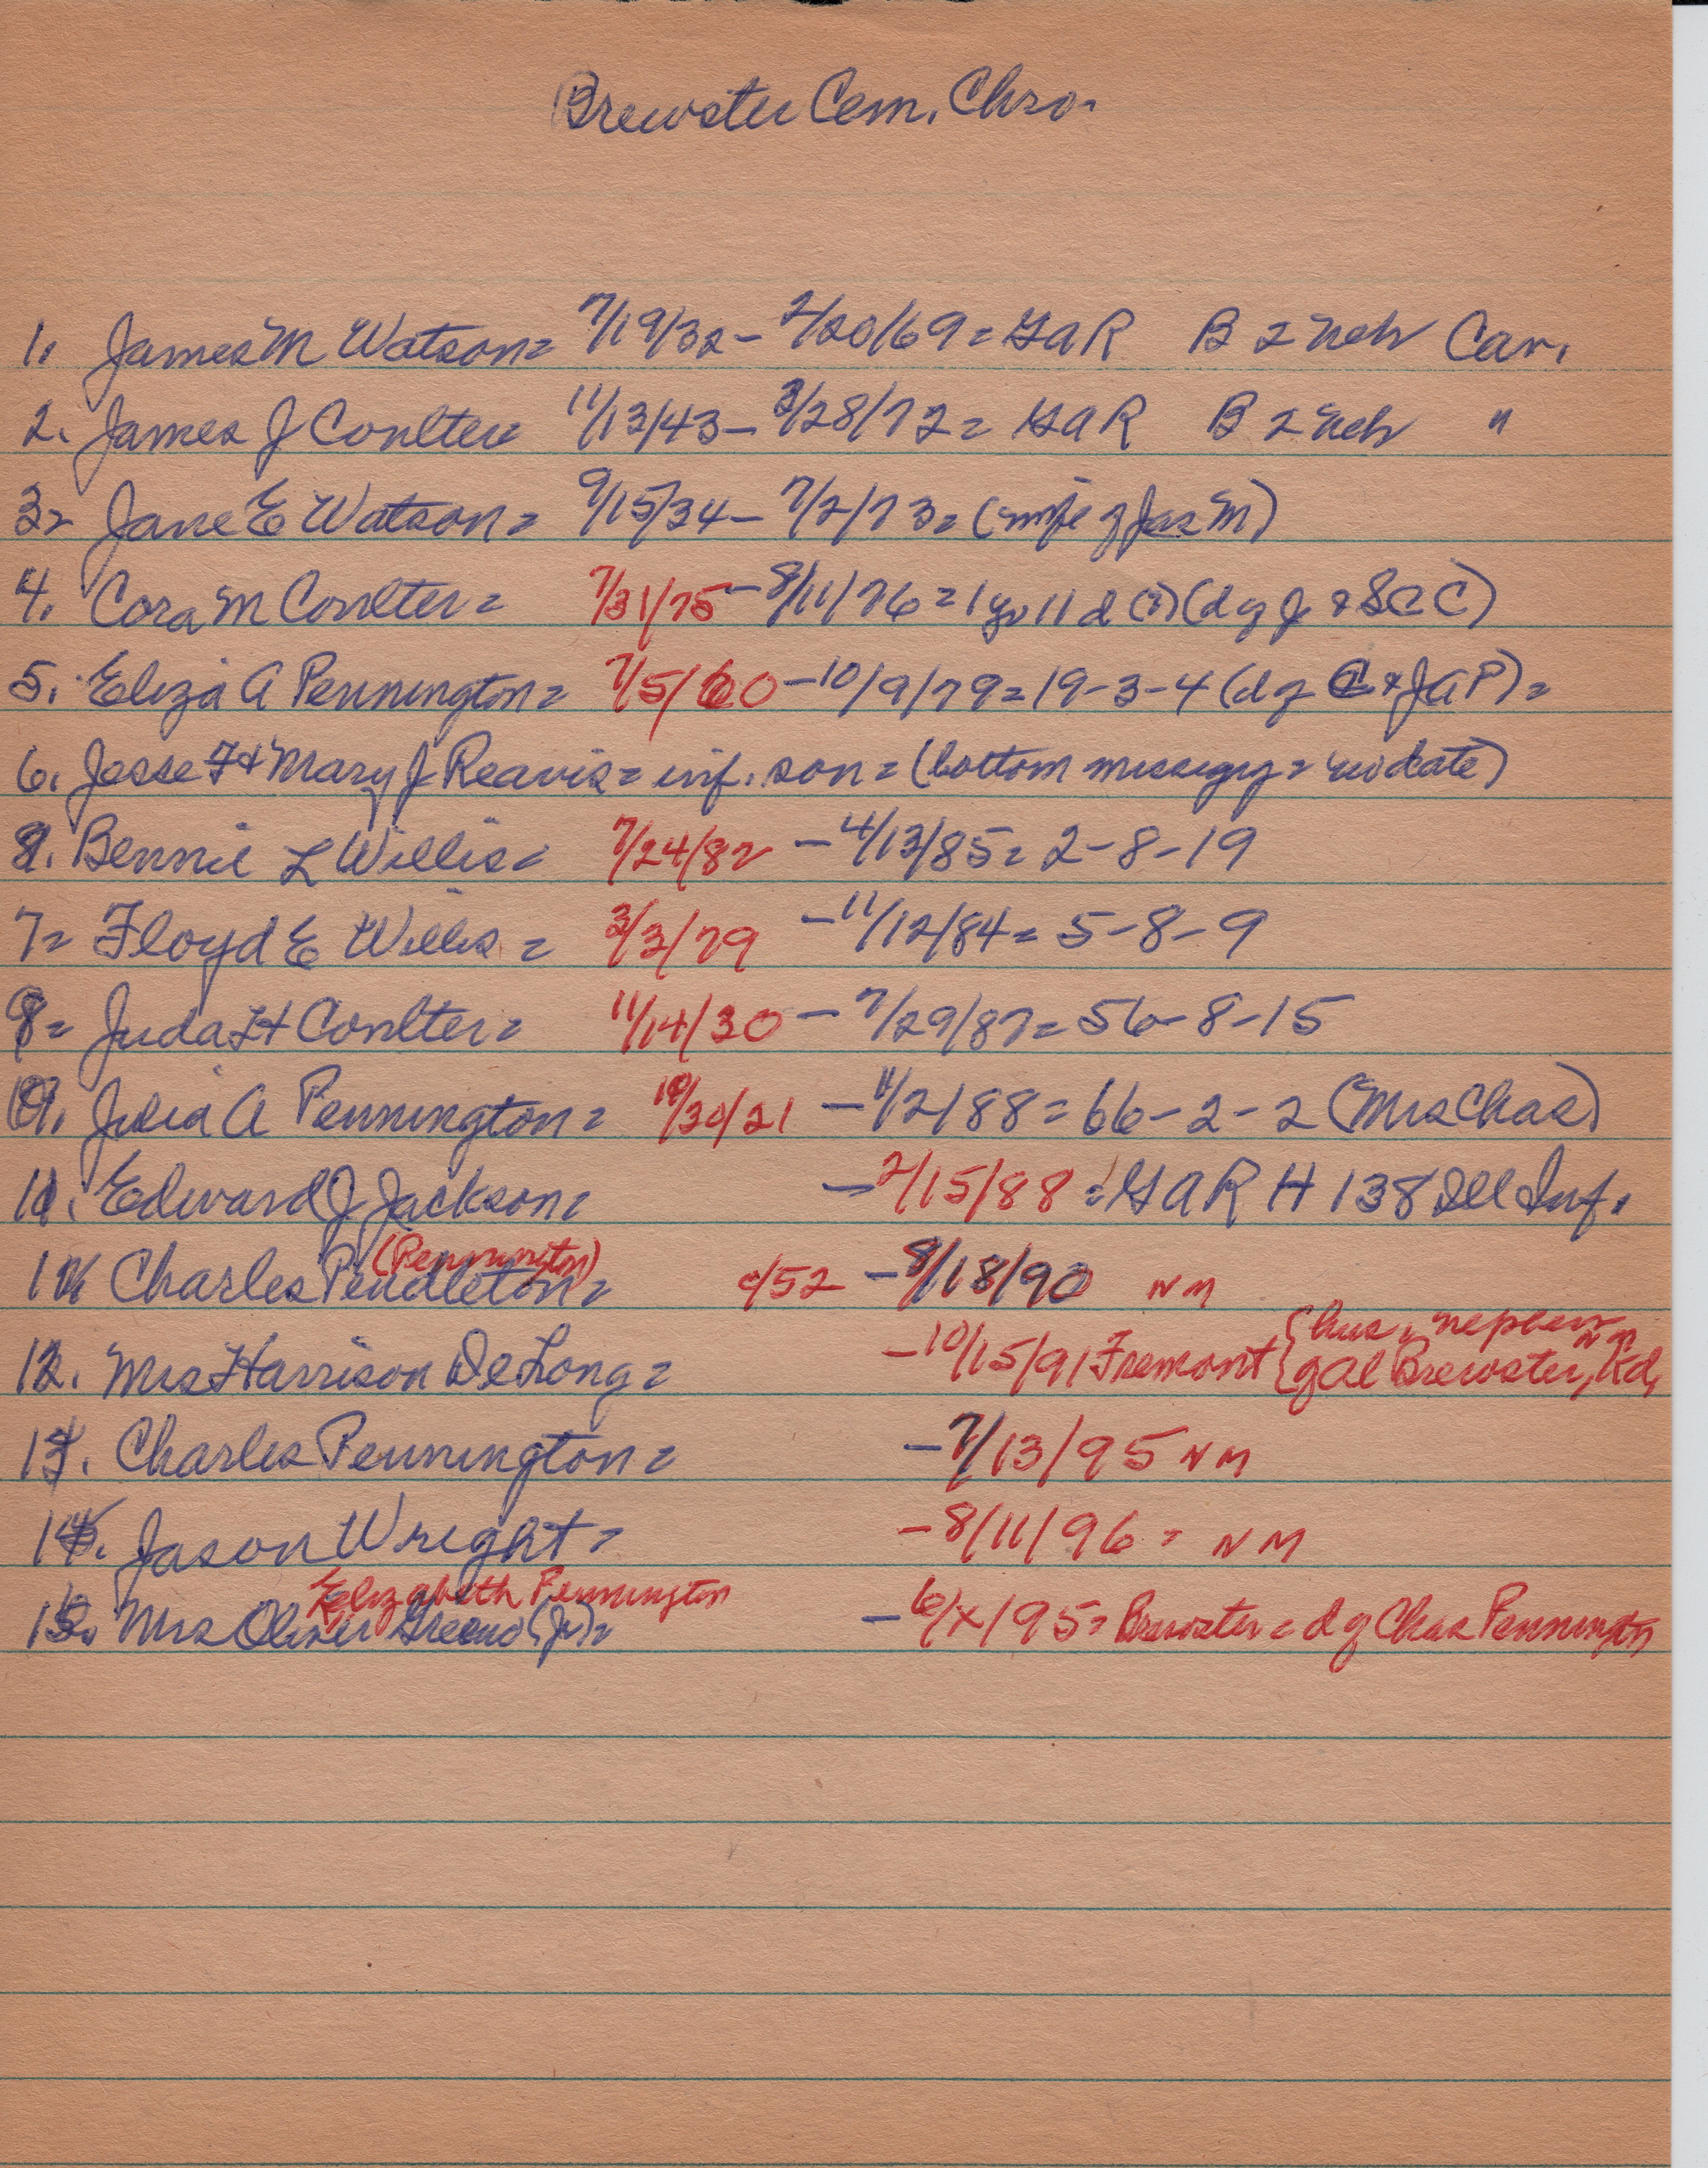 Brewster Cem. Chro.
1. James M Watson = 7/19/32 - 2/20/69 = GAR B 2 Neb Cav.
2. James J Coulter = 11/13/43 - 3/28/72 = GAR B 2 Neb "
3 = Jane E Watson = 9/15/34 - 7/2/73 = (wife of Jas M)
4. Cora M Coulter = 7/31/75 - 8/11/76 = 1 yr 11 d (?) (d of J & S C C)
5. Eliza A Pennington = 7/5/60 - 10/9/79 = 19-3-4 (d of C & J A P) =
6. Jesse F & Mary J Reavis = inf. son = (bottom missing = no date)
8. Bennie L Willis = 7/24/82 - 4/13/85 = 2-8-19
7 = Floyd E Willis = 3/3/79 - 11/12/84 = 5-8-9
9 = Juda H Coulter = 11/14/30 - 7/29/87 = 56-8-15
10. Julia A Pennington = 10/30/21 - 1/2/88 = 66-2-2 (Mrs Chas)
11. Edward J Jackson = - 2/15/88 = GAR H 138 Ill Inf.
(Pennington)
Charles Pendleton = c/52 - 8/18/90 NM
hus, nephew
12. Mrs Harrison DeLong = - 10/15/91 Fremont { of Al Brewster, Rd, NM
13. Charles Pennington = - 7/13/95 NM
14. Jason Wright = - 8/11/96 = NM
Elizabeth Pennington
15. Mrs Oliver Greeno (Jr) = - 6/x/95 = Brewster = d of Chas Pennington